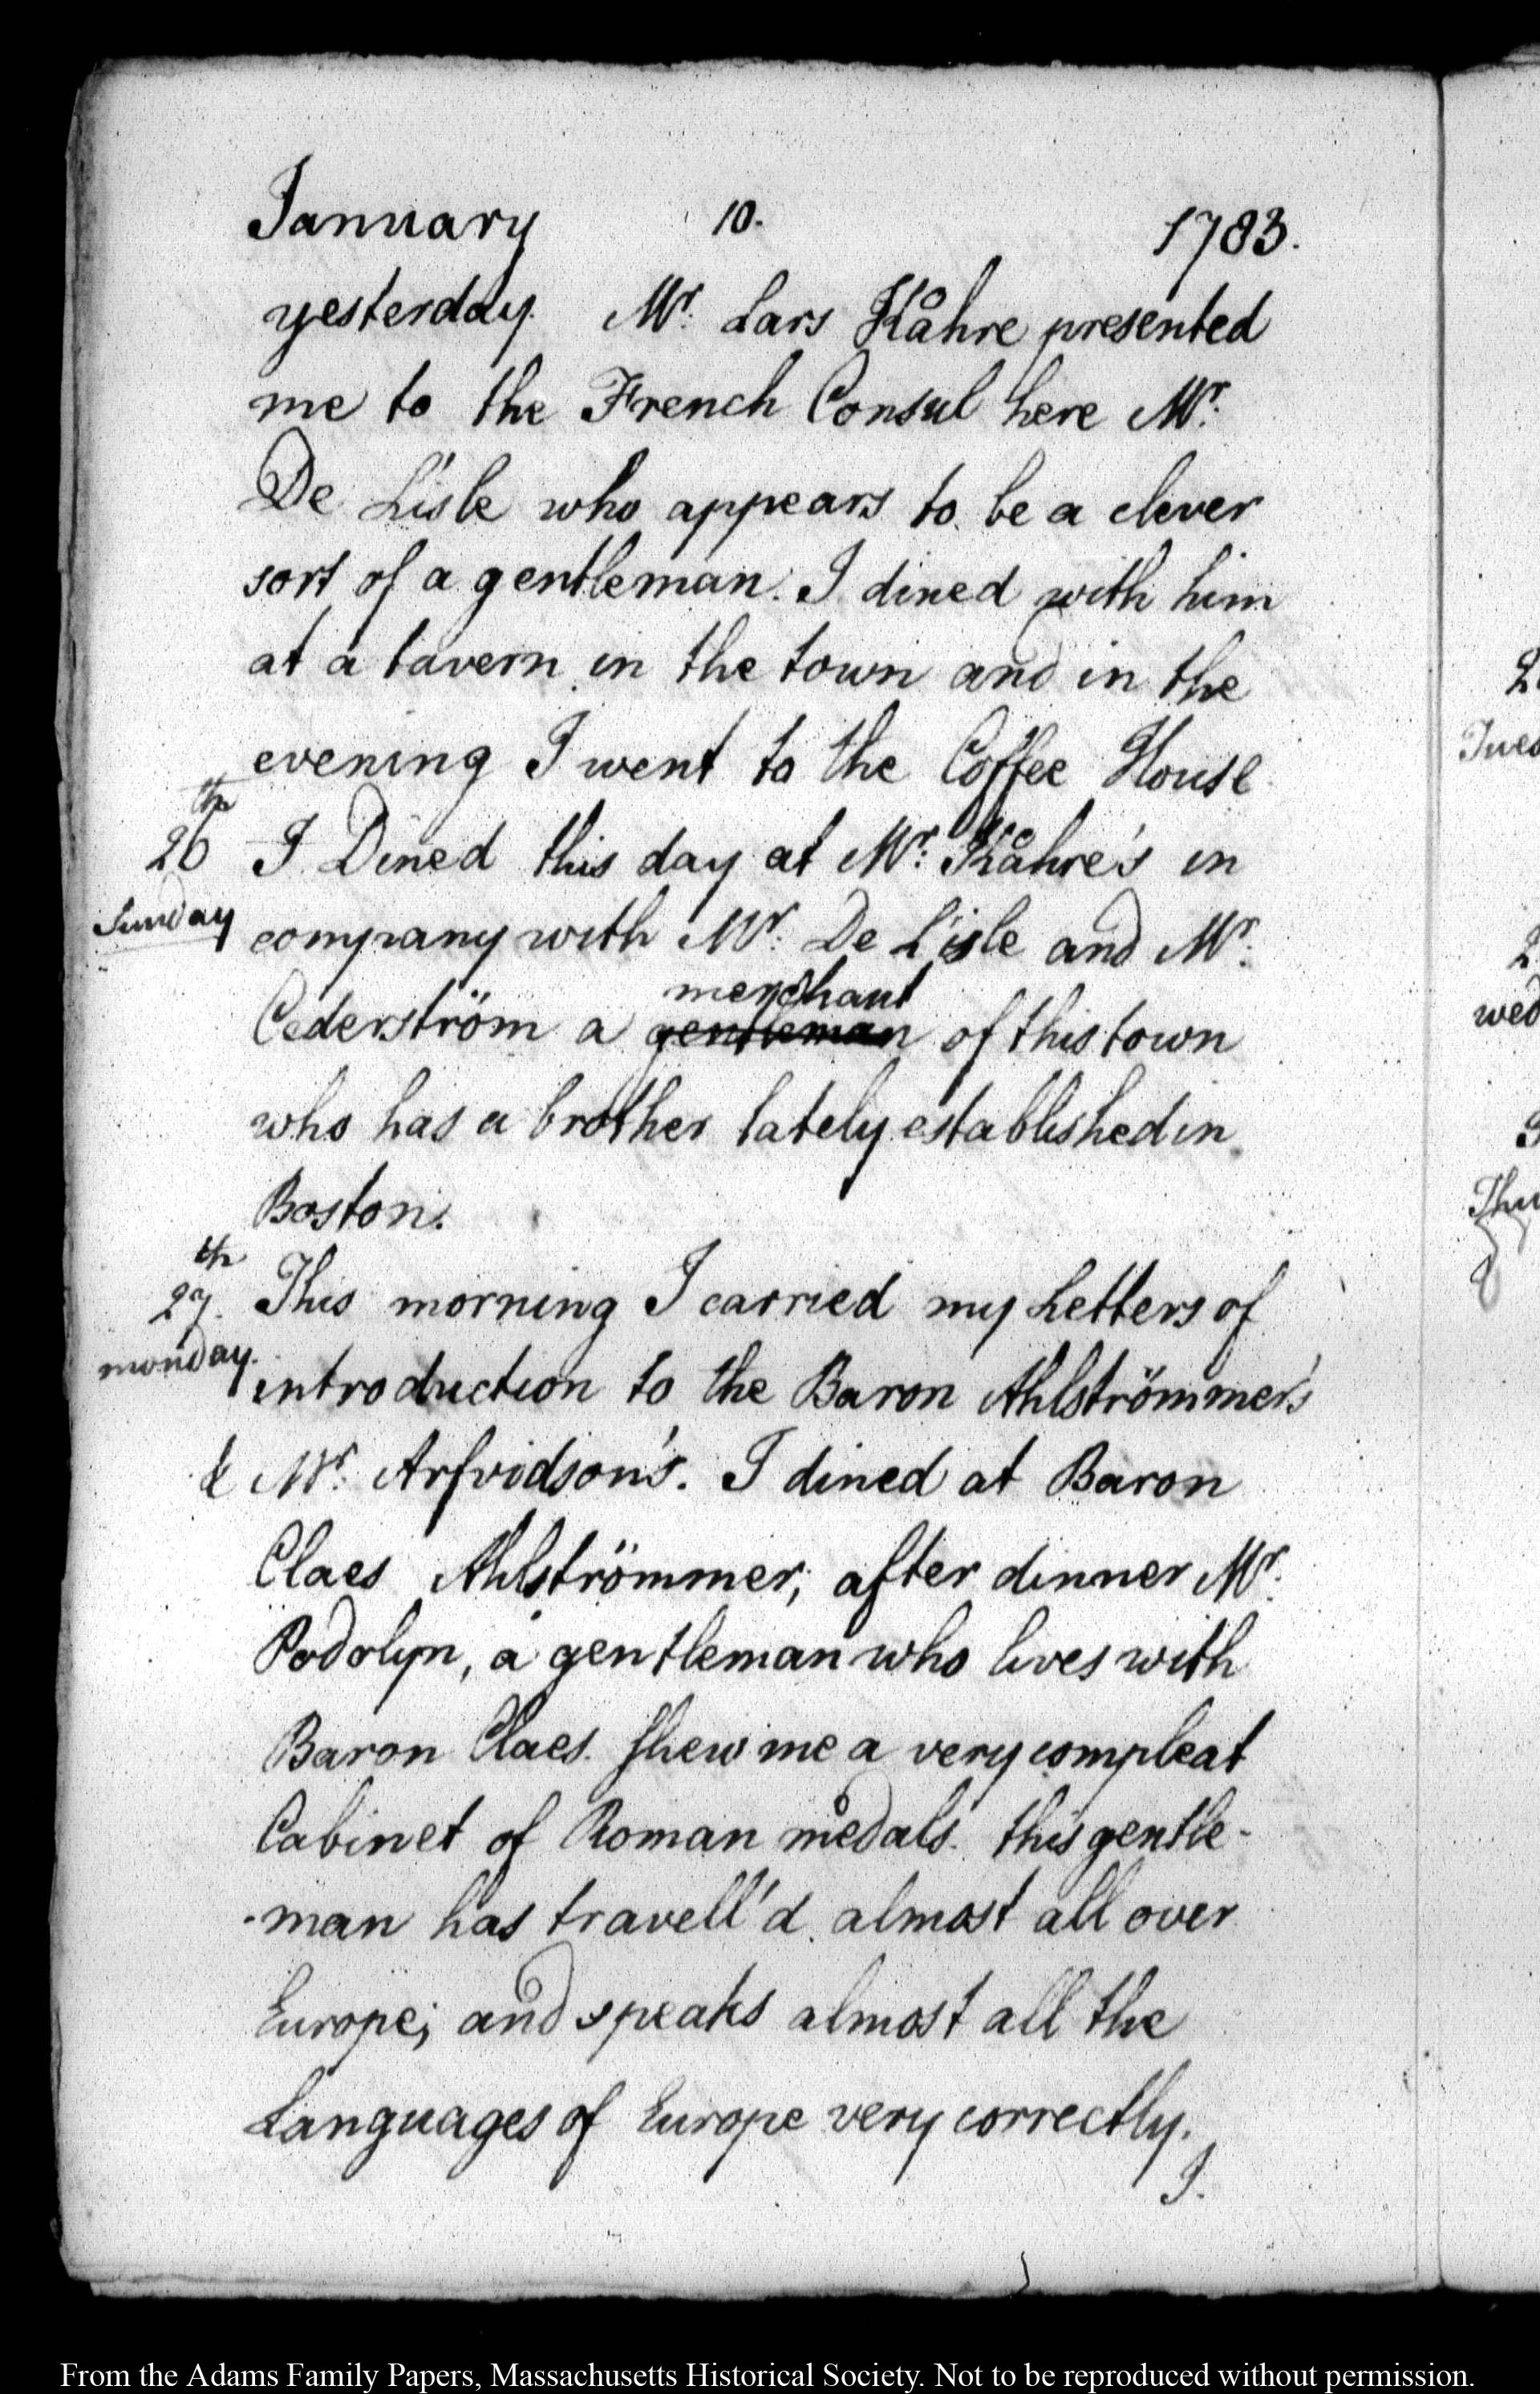 January 10. 1783.
yesterday. Mr. Lars Kåhre presented
me to the French Consul here Mr.
De L'isle who appears to be a clever
sort of a gentleman. I dined with him
at a tavern in the town and in the
evening I went to the Coffee House
26th I Dined this day at Mr. Kåhre's in
Sunday company with Mr. De L'isle and Mr.
merchant
Cederström a gentleman of this town
who has a brother lately established in
Boston.
27th This morning I carried my Letters of
monday. introduction to the Baron Ahlströmmer's
& Mr. Arfvidson's. I dined at Baron
Claes Ahlströmmer; after dinner Mr.
Podolyn, a gentleman who lives with
Baron Claes. shew me a very compleat
Cabinet of Roman medals. this gentle-
-man has travell'd almost all over
Europe; and speaks almost all the
Languages of Europe very correctly.
I.
Tues
wed
Thu
From the Adams Family Papers, Massachusetts Historical Society. Not to be reproduced without permission.